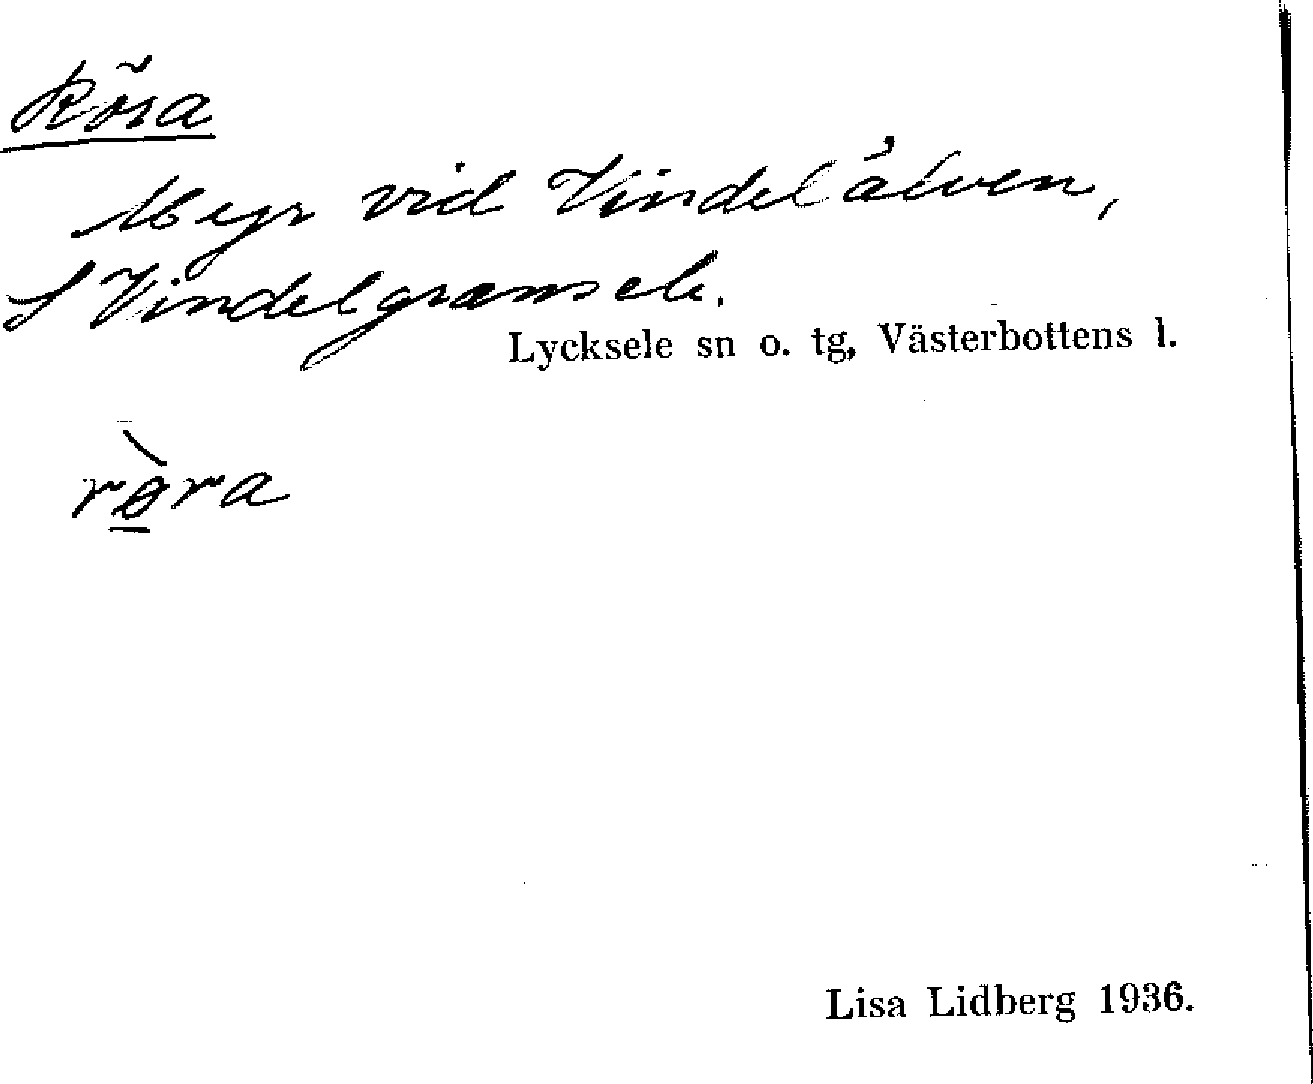 Röra
Myr vid Vindelälven,
S Vindelgransele.
Lycksele sn o. tg, Västerbottens l.
rø̀ra
Lisa Lidberg 1936.